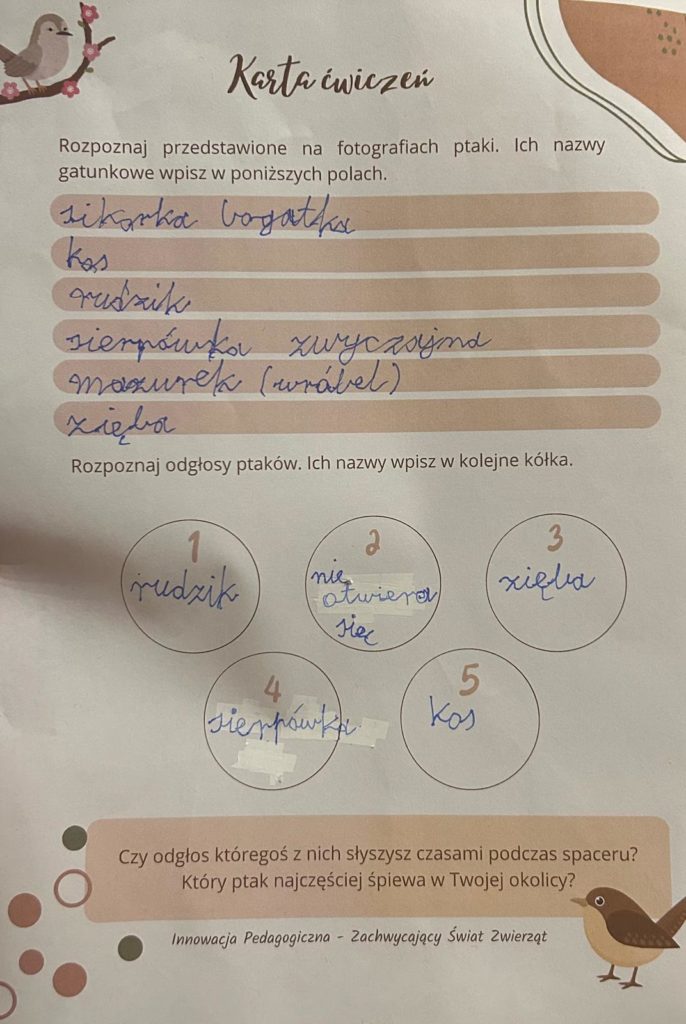 Karta ćwiczeń
Rozpoznaj przedstawione na fotografiach ptaki. Ich nazwy
gatunkowe wpisz w poniższych polach.
sikorka bogatka
kos
rudzik
sierpówka zwyczajna
mazurek (wróbel)
zięba
Rozpoznaj odgłosy ptaków. Ich nazwy wpisz w kolejne kółka.
1
rudzik
2
nie
otwiera
się
3
zięba
4
sierpówka
5
kos
Czy odgłos któregoś z nich słyszysz czasami podczas spaceru?
Który ptak najczęściej śpiewa w Twojej okolicy?
Innowacja Pedagogiczna - Zachwycający Świat Zwierząt